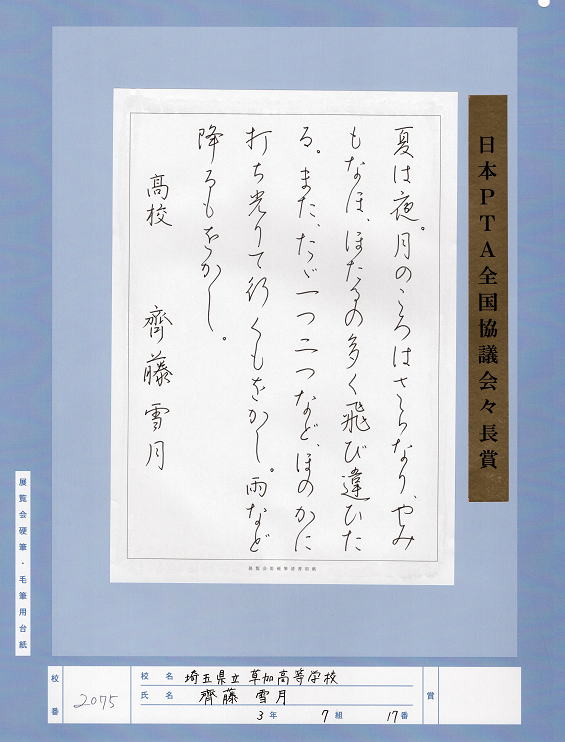 日本PTA全国協議会々長賞
夏は夜。月のころはさらなり、やみ
もなほ、ほたるの多く飛び違ひた
る。また、たゞ一つ二つなど、ほのかに
打ち光りて行くもをかし。雨など
降るもをかし。
高校 齊藤雪月
展覧会硬筆清書用紙
展覧会硬筆・毛筆用台紙
校番 2075
校名 埼玉県立草加高等学校
氏名 齊藤 雪月
3年 7組 17番
賞